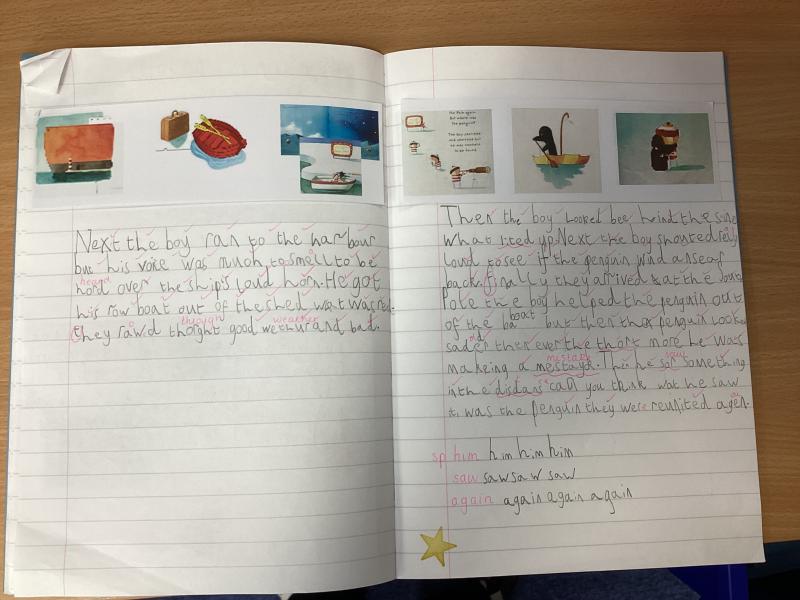 Next the boy ran to the harbour
but his voice was much to smell to be
heard
hord over the ship's loud horn. He got
his row boat out of the shed wat was red.
through weather
they rawd thorght good wethur and bad.
the Pole again.
But where was
the penguin?
The boy searched
and searched but
he was nowhere
to be found.
Then the boy Looked bee hind the
what Next the boy shouted
loud to see if the penguin wud ansear
back. finally they arrived at the
Pole the boy helped the penguin out
boat
of the ba but then the penguin Looked
sader then ever the thort more he was
mistake saw
makeing a mestayck. Then he sor something
in the disdans can you think wot he saw
it was the penguin they were reunited agen.
sp him him him him
saw saw saw saw
again again again again